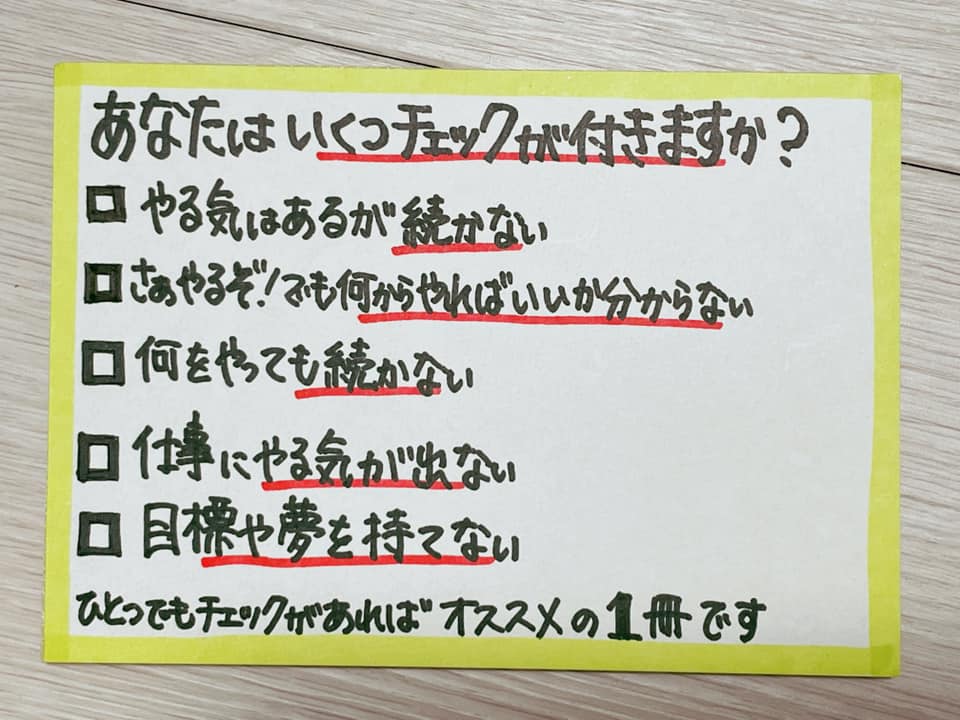 あなたはいくつチェックが付きますか?
□ やる気はあるが続かない
□ さぁやるぞ!でも何からやればいいか分からない
□ 何をやっても続かない
□ 仕事にやる気が出ない
□ 目標や夢を持てない
ひとつでもチェックがあればオススメの1冊です